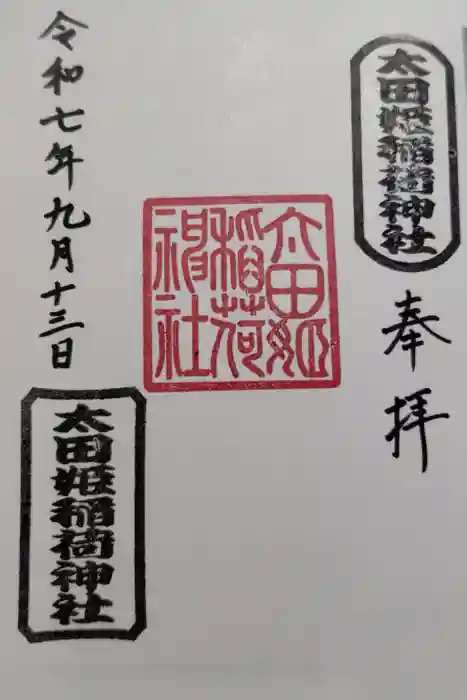 太田姫稲荷神社
奉拝
太田姫
稲荷
神社
令和七年九月十三日
太田姫稲荷神社